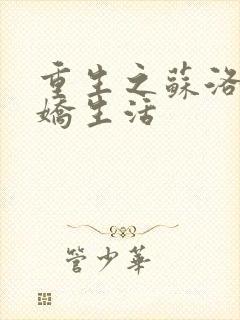 重生之蘇洛
嬌生活
管少華